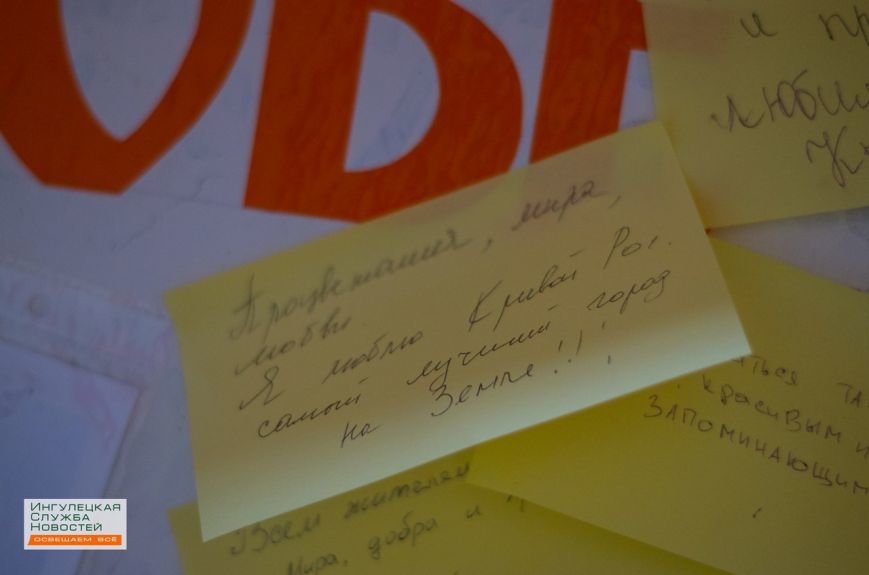 и пр
любил
Процветания, мира,
любви.
Я люблю Кривой Рог.
самый лучший город
на Земле!!!
ться та
красивым и
запоминающим
Всем жителям
Мира, добра и
Ингулецкая
Служба
Новостей
освещаем всё